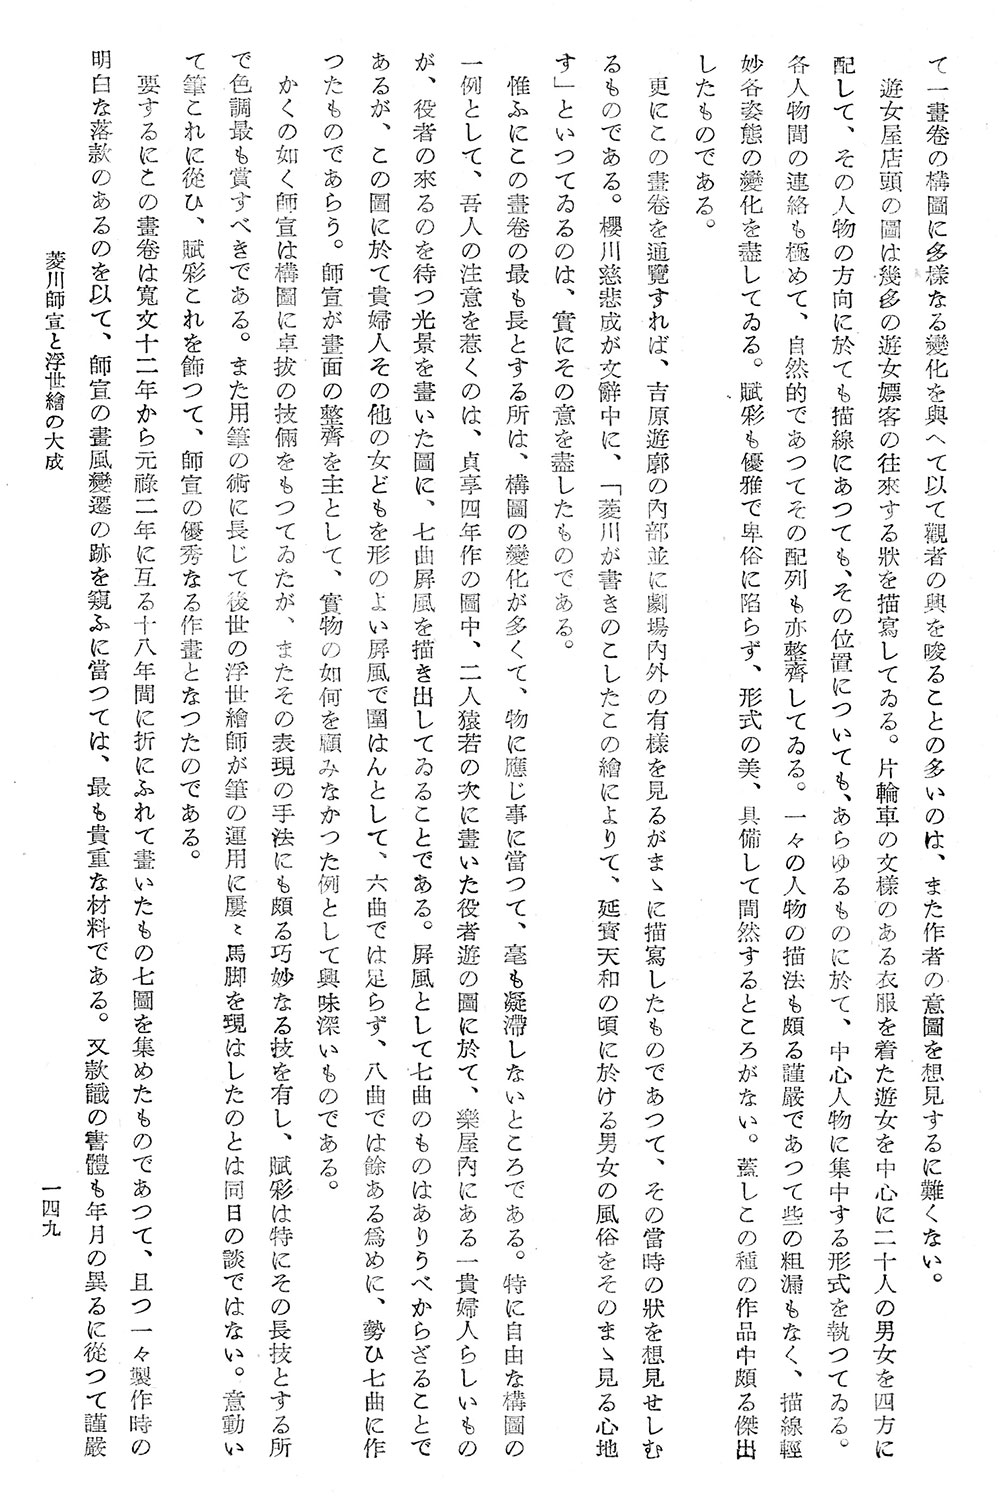 て一畫卷の構圖に多樣なる變化を與へて以て觀者の興を唆ることの多いのは、また作者の意圖を想見するに難くない。
遊女屋店頭の圖は幾多の遊女嫖客の往來する狀を描寫してゐる。片輪車の文樣のある衣服を着た遊女を中心に二十人の男女を四方に
配して、その人物の方向に於ても描線にあつても、その位置についても、あらゆるものに於て、中心人物に集中する形式を執つてゐる。
各人物間の連絡も極めて、自然的であつてその配列も亦整齊してゐる。一々の人物の描法も頗る謹嚴であつて些の粗漏もなく、描線輕
妙各姿態の變化を盡してゐる。賦彩も優雅で卑俗に陷らず、形式の美、具備して間然するところがない。蓋しこの種の作品中頗る傑出
したものである。
更にこの畫卷を通覽すれば、吉原遊廓の內部並に劇場內外の有樣を見るがまゝに描寫したものであつて、その當時の狀を想見せしむ
るものである。櫻川慈悲成が文辭中に、「菱川が書きのこしたこの繪によりて、延寶天和の頃に於ける男女の風俗をそのまゝ見る心地
す」といつてゐるのは、實にその意を盡したものである。
惟ふにこの畫卷の最も長とする所は、構圖の變化が多くて、物に應じ事に當つて、毫も凝滯しないところである。特に自由な構圖の
一例として、吾人の注意を惹くのは、貞享四年作の圖中、二人猿若の次に畫いた役者遊の圖に於て、樂屋內にある一貴婦人らしいもの
が、役者の來るのを待つ光景を畫いた圖に、七曲屏風を描き出してゐることである。屏風として七曲のものはありうべからざることで
あるが、この圖に於て貴婦人その他の女どもを形のよい屏風で圍はんとして、六曲では足らず、八曲では餘ある爲めに、勢ひ七曲に作
つたものであらう。師宣が畫面の整齊を主として、實物の如何を顧みなかつた例として興味深いものである。
かくの如く師宣は構圖に卓拔の技倆をもつてゐたが、またその表現の手法にも頗る巧妙なる技を有し、賦彩は特にその長技とする所
で色調最も賞すべきである。また用筆の術に長じて後世の浮世繪師が筆の運用に屢〻馬脚を現はしたのとは同日の談ではない。意動い
て筆これに從ひ、賦彩これを飾つて、師宣の優秀なる作畫となつたのである。
要するにこの畫卷は寬文十二年から元祿二年に亙る十八年間に折にふれて畫いたもの七圖を集めたものであつて、且つ一々製作時の
明白な落款のあるのを以て、師宣の畫風變遷の跡を窺ふに當つては、最も貴重な材料である。又款識の書體も年月の異るに從つて謹嚴
菱川師宣と浮世繪の大成
一四九